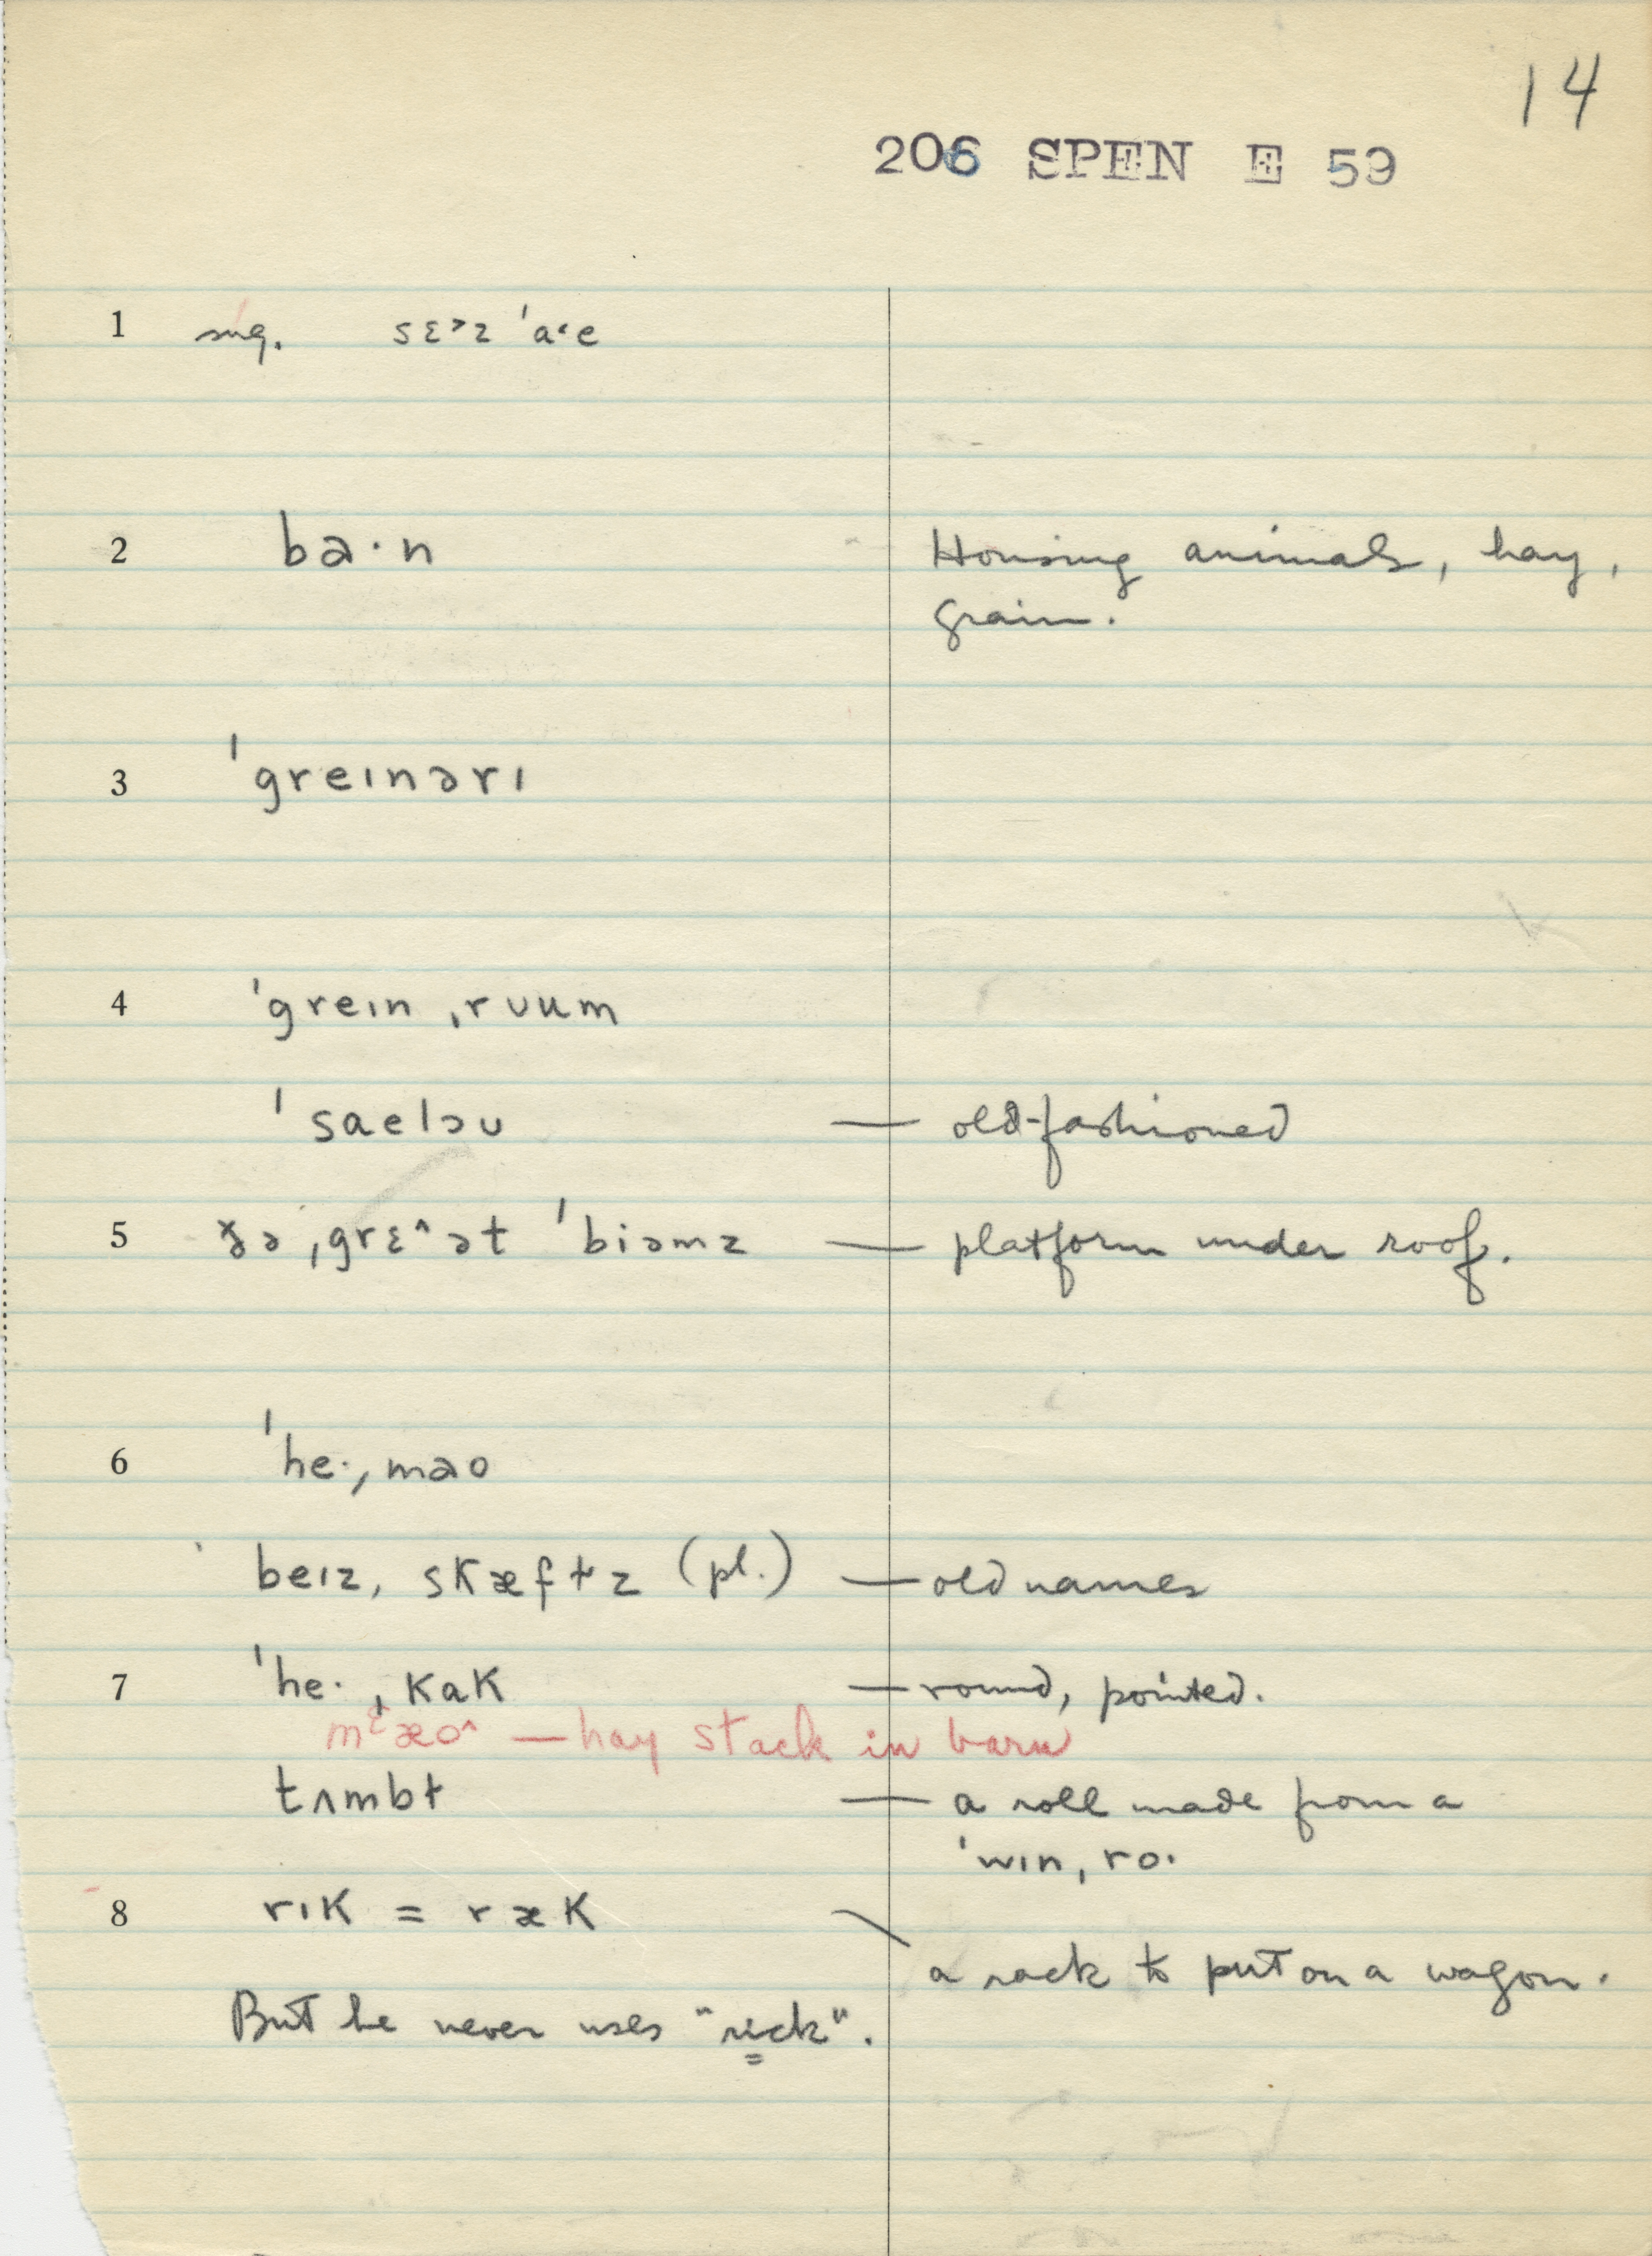 14
206 SPEN E 59
1 sug. sɛ˃z ˈaˑe
2 ba·n Housing animals, hay,
grain.
3 ˈgreınərı
4 ˈgreın ˌrᴜum
ˈsaelɔᴜ — old-fashioned
5 ðə ˌgrɛ^ət ˈbiəmz — platform under roof.
6 ˈhe·ˌmao
beız, skæfɫz (pl.) — old names
7 ˈhe·ˌkak — round, pointed.
mᵋæo^ — hay stack in barn
tʌmbɫ — a roll made from a
ˈwınˌro·
8 rık = ræk
a rack to put on a wagon.
But he never uses "rick".